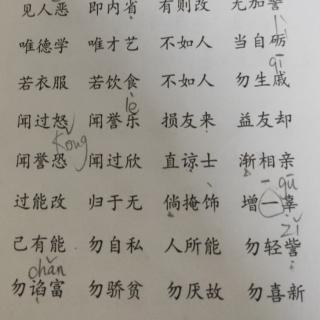 见人恶 即内省 有则改 无加警
lì
唯德学 唯才艺 不如人 当自砺
qī
若衣服 若饮食 不如人 勿生戚
lè
闻过怒 闻誉乐 损友来 益友却
kǒng
闻誉恐 闻过欣 直谅士 渐相亲
gū
过能改 归于无 倘掩饰 增一辜
zǐ
己有能 勿自私 人所能 勿轻訾
chǎn
勿谄富 勿骄贫 勿厌故 勿喜新